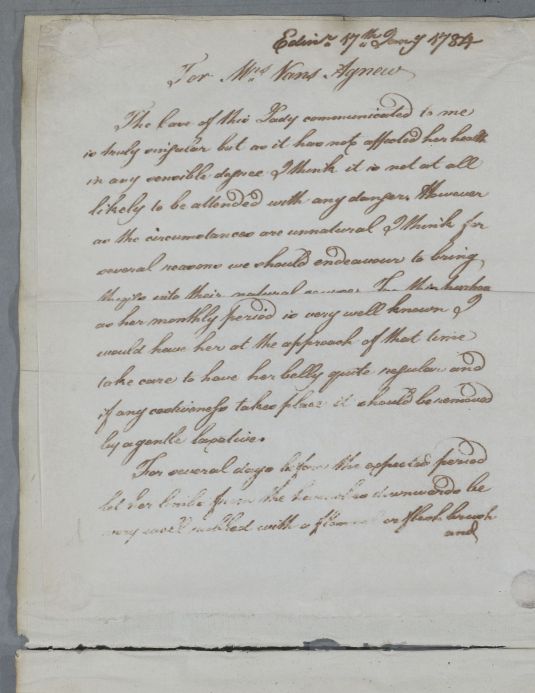 Edinr. 17th Jany 1784
For Mrs Vans Agnew
The Case of this Lady communicated to me
is truly singular but as it has not affected her health
in any sensible degree I think it is not at all
likely to be attended with any danger. However
as the circumstances are unnatural I think for
several reasons we should endeavour to bring
things into their natural course. For this purpose
as her monthly period is very well known I
would have her at the approach of that time
take care to have her belly quite regular and
if any costiveness takes place it should be removed
by a gentle laxative.
For several days before the expected period
let her limbs from the haunches downwards be
very well rubbed with a flannel or flesh brush
and